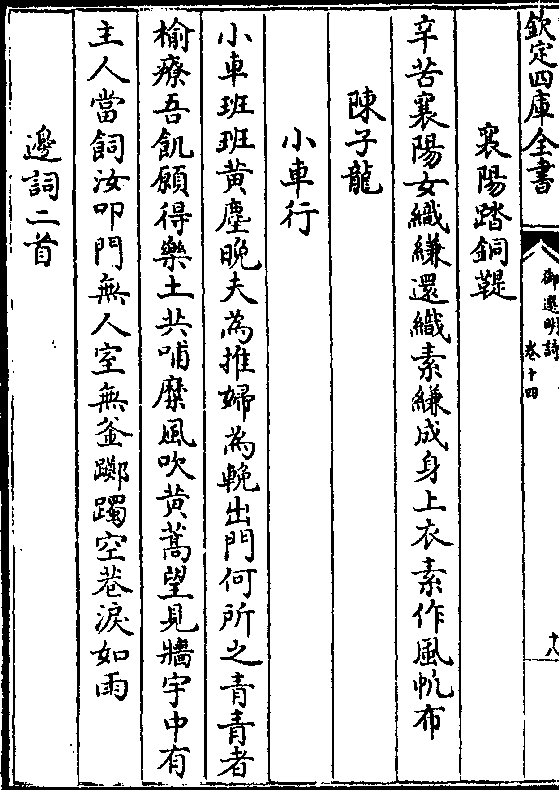 欽定四庫全書
御選明詩
卷十四
十八
襄陽踏銅鞮
辛苦襄陽女織縑還織素縑成身上衣素作風帆布
陳子龍
小車行
小車班班黃塵晚夫為推婦為輓出門何所之青青者
榆療吾飢願得樂土共哺糜風吹黃蒿望見牆宇中有
主人當飼汝叩門無人室無釜躑躅空巷淚如雨
邊詞二首